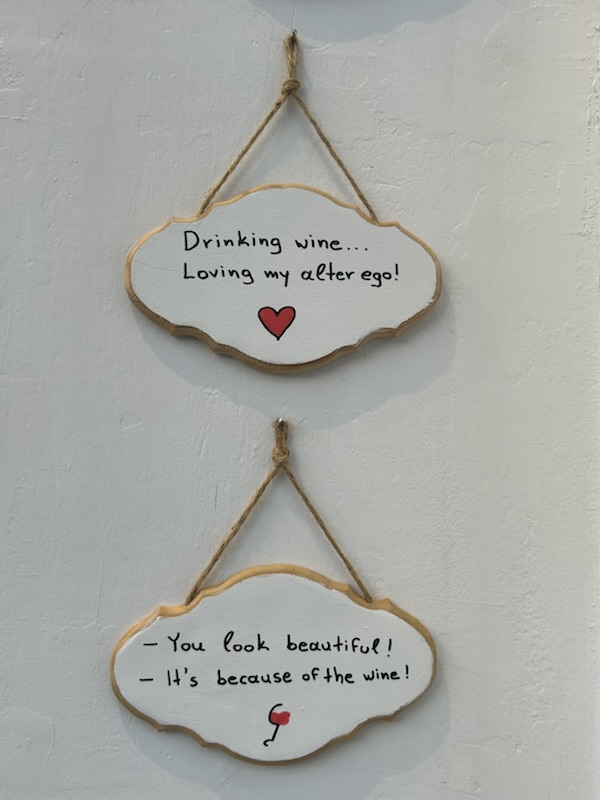 Drinking wine...
Loving my alter ego!
- You look beautiful!
- It's because of the wine!